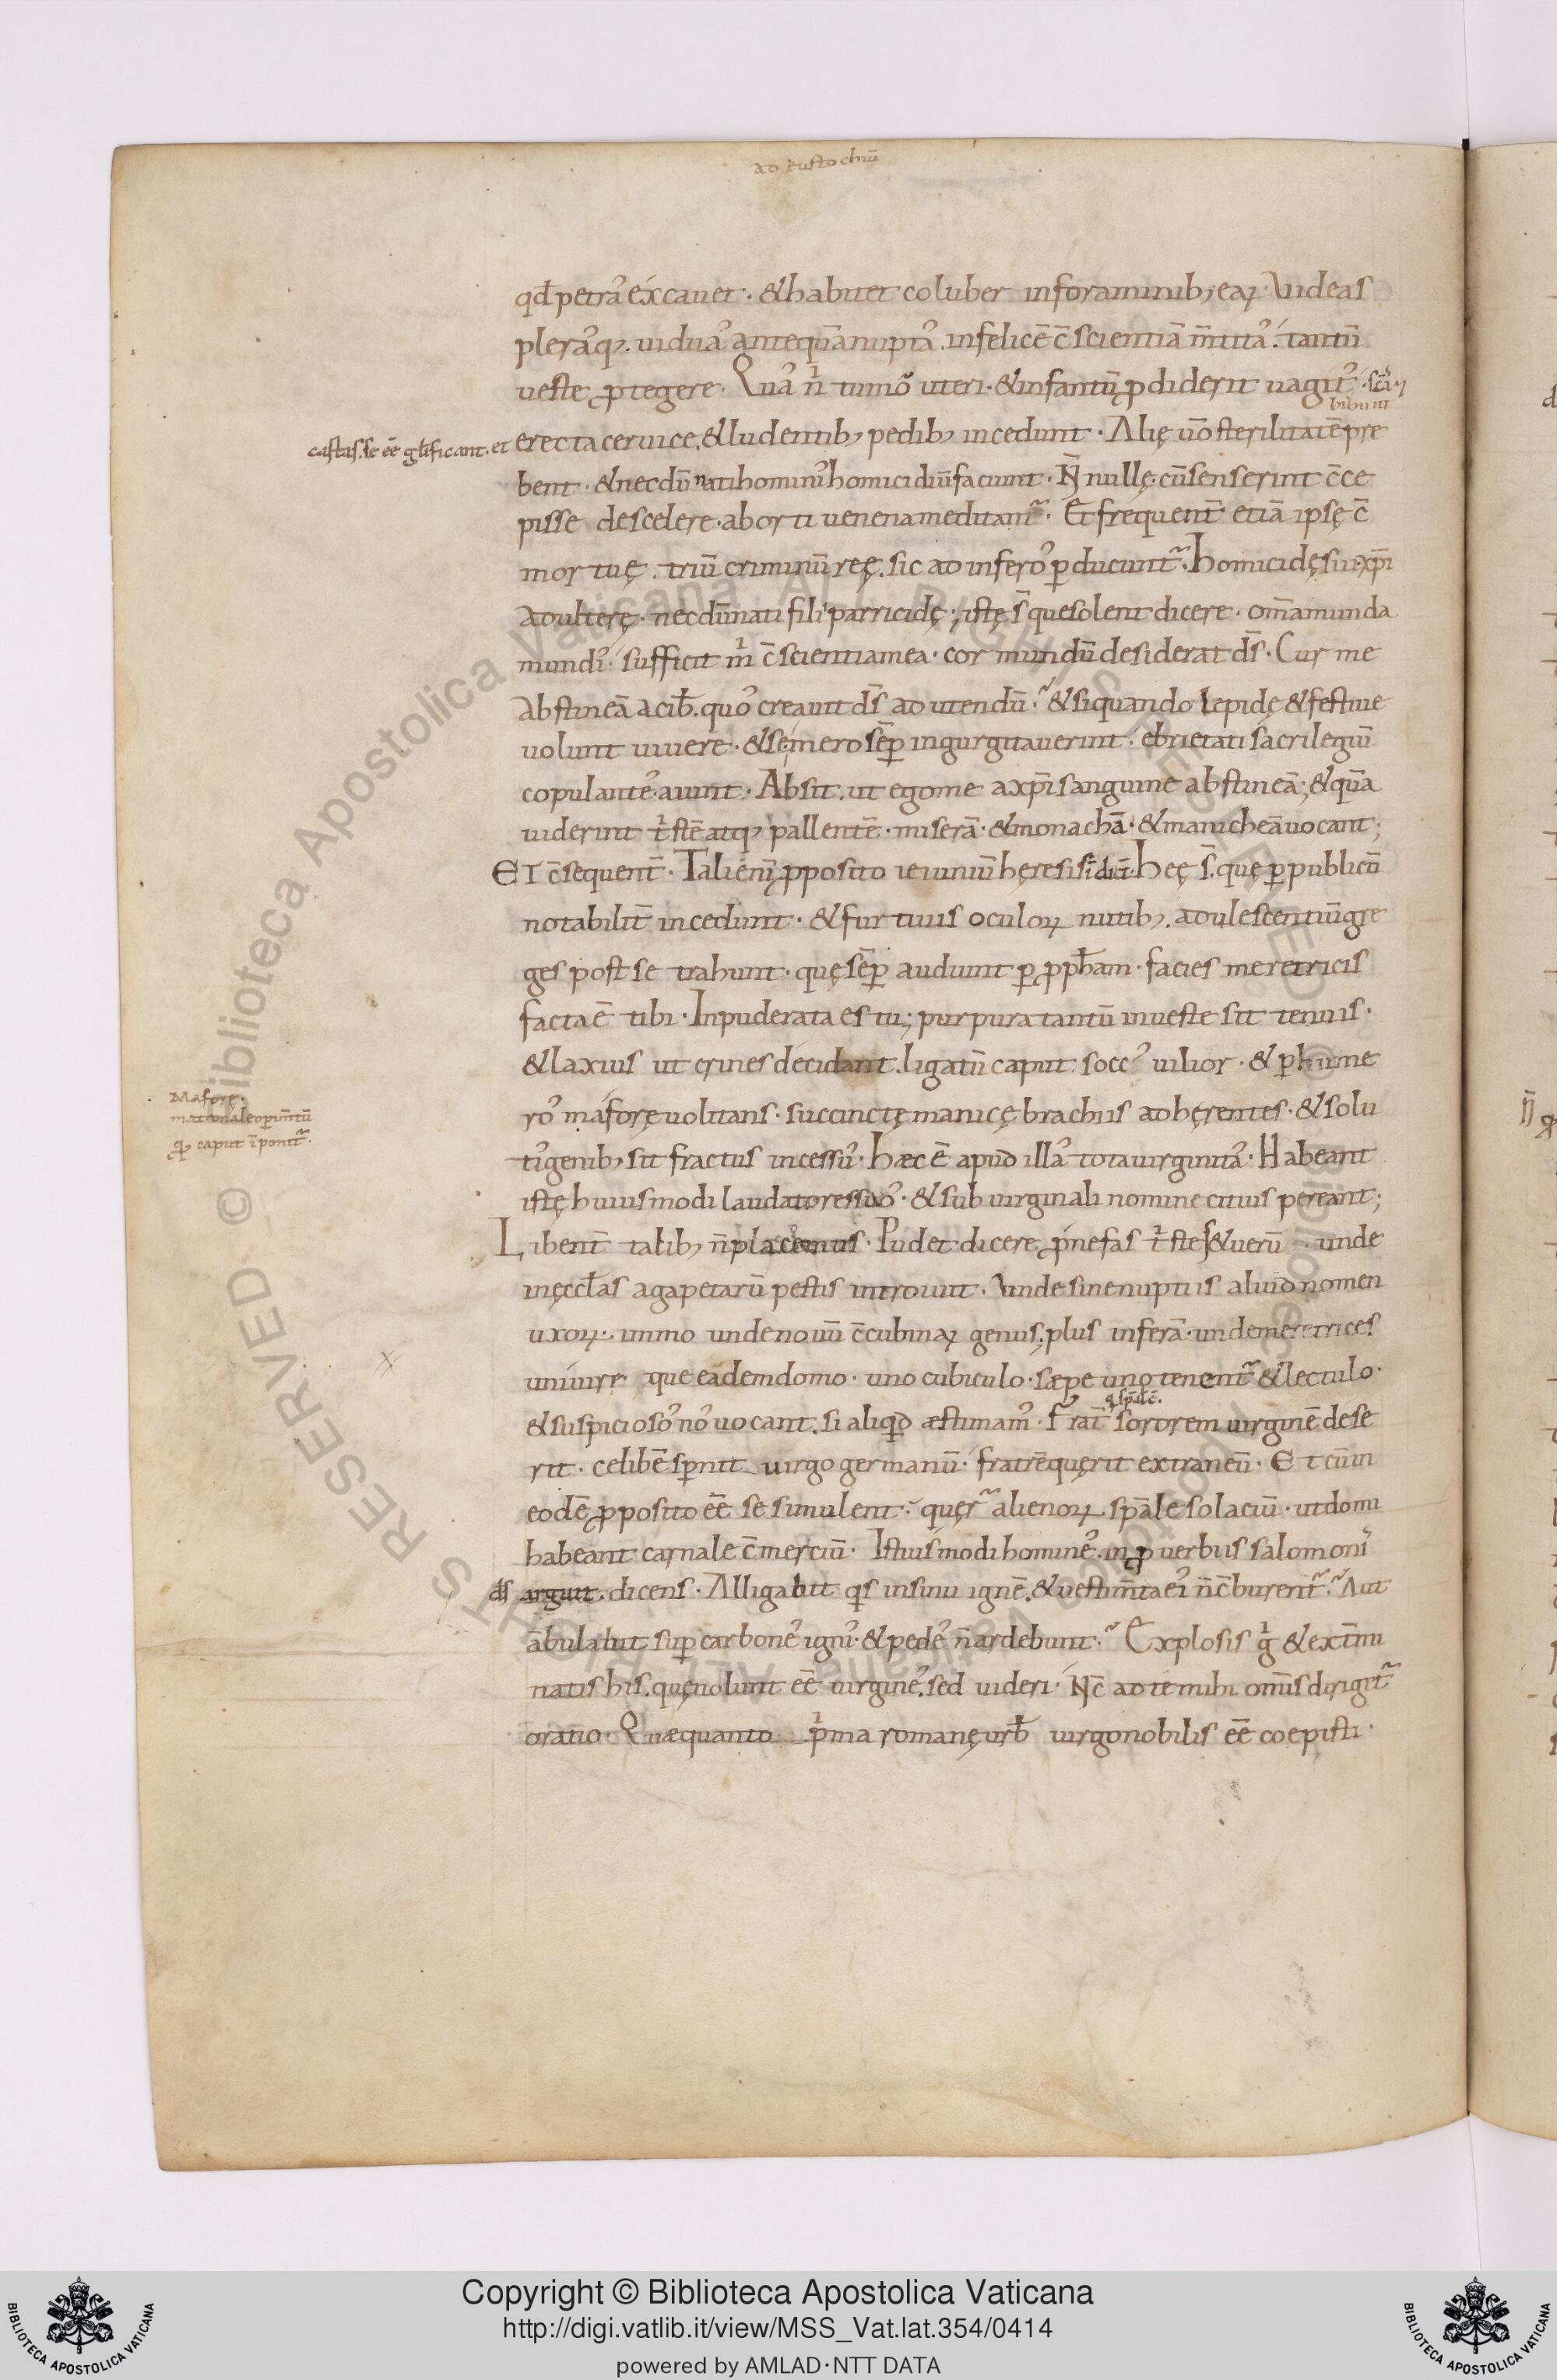 ad eustochiū
qđ petrā excauet · & habitet coluber in foraminib; eaꝝ · Uideas
plerāq;. uiduaˀ antequā nuptaˀ. infelicē c̄scientiā m̄titaˀ. tantū
ueste ꝓtegere · Quaˀ n̍ tumoˀ uteri · & infantū ꝓdiderit uagitˀ ·
castas. se eē gl̄ificant. et erecta ceruice. & ludentib; pedib; incedunt · Alię ū̄o sterilitatē pre
bibunt
bent · & necdū nati hominiˀ homicidiū faciunt · N̄nullę · cū senserint c̄ce
pisse de scelere · aborti uenena meditant̃ · Et frequent̄ etiā ipsę c̄
mortuę . triū criminū reę. sic ad inferoˀ ꝑducunt̃ · homicidę sui · xp̄i
adulterę · necdū nati filii parricidę ·; istę s̄ que solent dicere · om̄a munda
mundiˀ · sufficit m̍ c̄scientia mea · cor mundū desiderat d̄s · Cur me
abstineā a cib̄. quoˀ creauit d̄s ad utendū ·̃ & si quando lepidę & festiue
uolunt uiuere · & se mero sēꝑ ingurgitauerint · ebrietati sacrilegiū
copulanteˀ aiunt · Absit. ut ego me a xp̄i sanguine abstineā ·; & quā
uiderint t̍stē atq; pallentē · miserā · & monachā · & manicheā uocant ;
Et c̄sequent̄ · Tali enī ꝓposito ieiuniū hęresis ē · hęę s̄. quę ꝑ publicū
notabilit̄ incedunt · & furtiuis oculoꝝ nutib;. adulescentiū gre
ges post se trahunt · quę sēꝑ audiunt ꝑ ꝓph̄am · facies meretricis
facta ē tibi · Inpuderata es tu ; purpura tantū in ueste sit tenuis ·
& laxius ut crines decidant. ligatū caput. soccˀ uilior · & ꝑ hume
roˀ maforę uolitans · succinctę manicę brachiis adhęrentes · & solu
Maforę ·
matronale opim̄tū
qđ caput īponit̃ ·
tiˀ genib; sit fractus incessuˀ · hæc ē apud illaˀ tota uirginitaˀ · Habeant
istę huiusmodi laudatores suoˀ · & sub uirginali nomine citius pereant ;
Libent̄ talib; n̄ placemus · Pudet dicere ꝓ nefas t̍ste s; & uerū · unde
in ęccl̄as agapetarū pestis introiuit · Unde sine nuptiis aliud nomen
uxoꝝ · immo unde nouū c̄cubinaꝝ genus ; plus inferā · unde meretrices
uniuirę · que eadem domo · uno cubiculo · sæpe uno tenent̃ & lectulo ·
& suspiciosoˀ noˀ uocant. si aliqid æstimamˀ · frat̄ sororem uirginē dese
rit · celibē sꝑnit uirgo germanū · fratrē quęrit extraneū · Et cū in
eodē ꝓposito eē se simulent · quęr̃ alienoꝝ spāle solaciū · ut domi
habeant carnale c̄merciū · Istiusmodi homineˀ. in ꝓuerbiis salomoniˀ
d̄s arguit. dicens · Alligabit qis in sinu ignē. & uestim̄ta eiˀ n̄ c̄burent̃ ·̃ Aut
ābulabit suꝑ carboneˀ igniˀ · & pedeˀ n̄ ardebunt ·̃ Explosis g̍ & ext̄mi
natis his. quę nolunt eē uirgineˀ. sed uideri · Nc̄ ad te mihi om̄is dirigit̃
oratio · Quæ quanto p̍ma romanę urb̄ uirgo nobilis eē coepisti ·
Copyright © Biblioteca Apostolica Vaticana
http://digi.vatlib.it/view/MSS_Vat.lat.354/0414
powered by AMLAD·NTT DATA